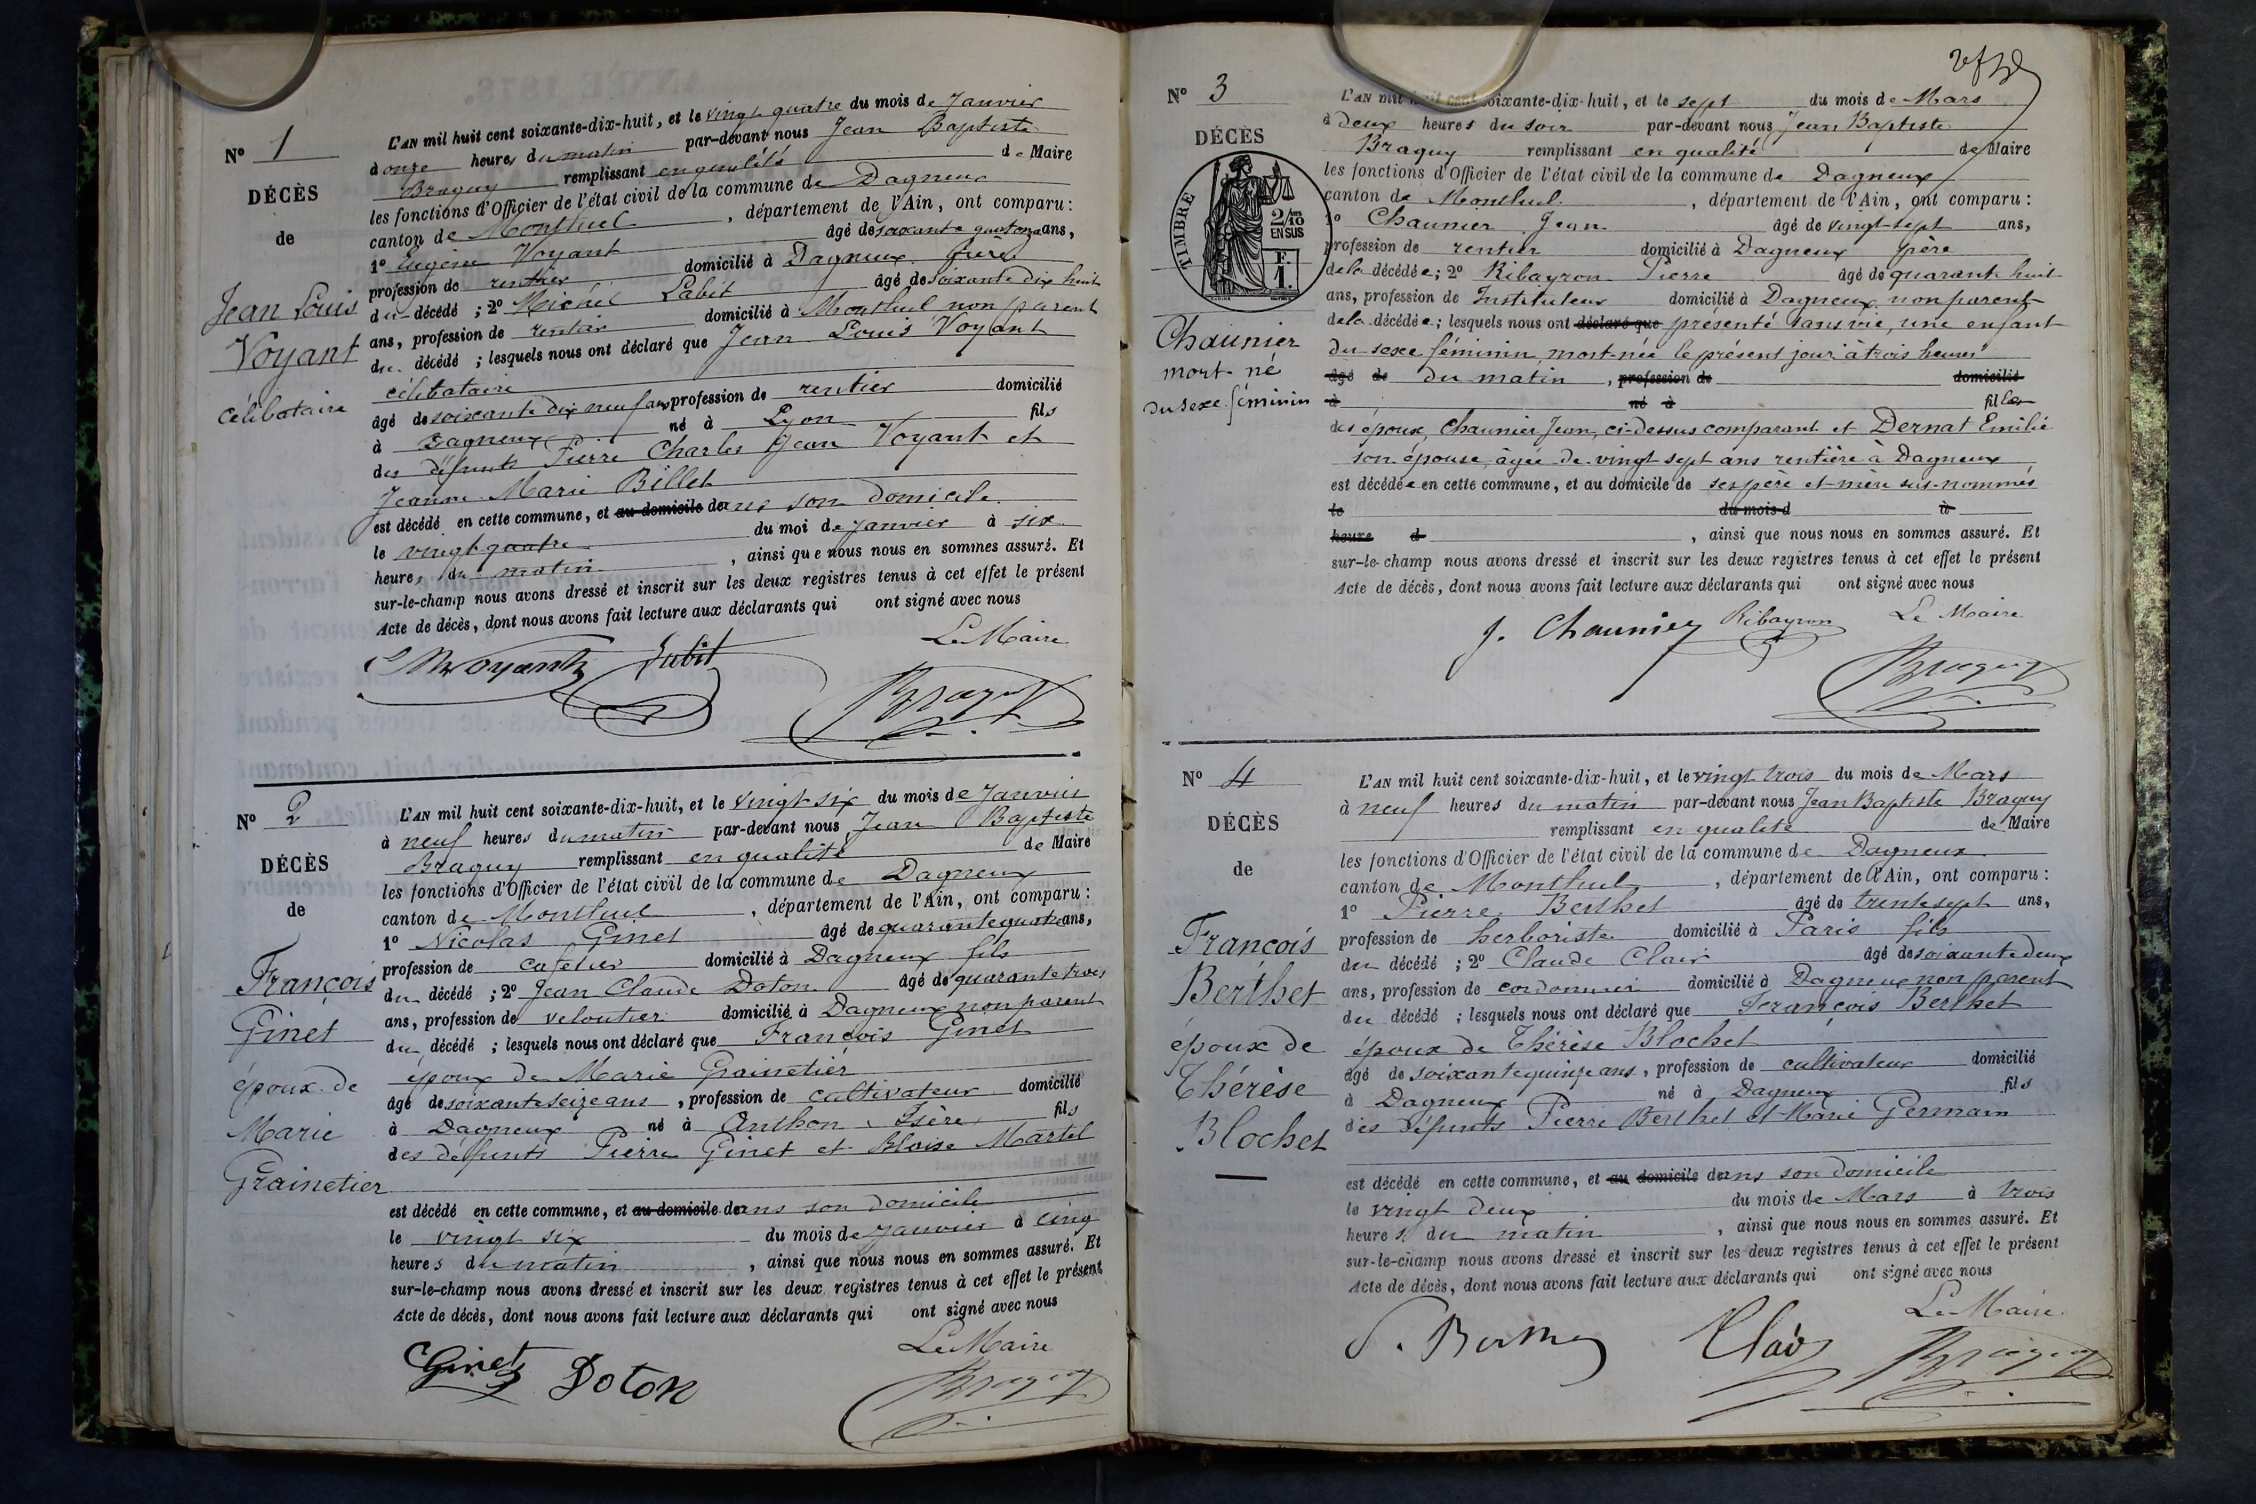 Nº 1
DÉCÈS
de
Jean Louis
Voyant
célibataire
L'AN mil huit cent soixante-dix-huit, et le vingt quatre du mois de Janvier
à onze heures du matin par-devant nous Jean Baptiste
Braguy remplissant en qualité de Maire
les fonctions d'Officier de l'état civil de la commune de Dagneux
canton de Montluel, département de l'Ain, ont comparu :
1º Eugène Voyant âgé de soixante quatorze ans,
profession de rentier domicilié à Dagneux frère
du décédé ; 2º Michel Labit âgé de soixante dix huit
ans, profession de rentier domicilié à Montluel non parent
du décédé ; lesquels nous ont déclaré que Jean Louis Voyant
célibataire
âgé de soixante dix neuf ans profession de rentier domicilié
à Dagneux né à Lyon fils
des défunts Pierre Charles Jean Voyant et
Jeanne Marie Billet
est décédé en cette commune, et au domicile dans son domicile
le vingt quatre du moi de Janvier à six
heures du matin, ainsi que nous nous en sommes assuré. Et
sur-le-champ nous avons dressé et inscrit sur les deux registres tenus à cet effet le présent
Acte de décès, dont nous avons fait lecture aux déclarants qui ont signé avec nous
Le Maire
Voyant Labit
Braguy
Nº 2
DÉCÈS
de
François
Ginet
époux de
Marie
Grainetier
L'AN mil huit cent soixante-dix-huit, et le vingt six du mois de Janvier
à neuf heures du matin par-devant nous Jean Baptiste
Braguy remplissant en qualité de Maire
les fonctions d'Officier de l'état civil de la commune de Dagneux
canton de Montluel, département de l'Ain, ont comparu :
1º Nicolas Ginet âgé de quarante quatre ans,
profession de cafetier domicilié à Dagneux fils
du décédé ; 2º Jean Claude Doton âgé de quarante trois
ans, profession de veloutier domicilié à Dagneux non parent
du décédé ; lesquels nous ont déclaré que François Ginet
époux de Marie Grainetier
âgé de soixante seize ans, profession de cultivateur domicilié
à Dagneux né à Anthon, Isère fils
des défunts Pierre Ginet et Bloise Martel
est décédé en cette commune, et au domicile dans son domicile
le vingt six du mois de Janvier à cinq
heures du matin, ainsi que nous nous en sommes assuré. Et
sur-le-champ nous avons dressé et inscrit sur les deux registres tenus à cet effet le présent
Acte de décès, dont nous avons fait lecture aux déclarants qui ont signé avec nous
Le Maire
Ginet Doton
Braguy
Nº 3
DÉCÈS
TIMBRE
2/10 EN SUS
F. 1.
Chaunier
mort-né
du sexe féminin
L'AN mil huit cent soixante-dix-huit, et le sept du mois de Mars
à deux heures du soir par-devant nous Jean Baptiste
Braguy remplissant en qualité de Maire
les fonctions d'Officier de l'état civil de la commune de Dagneux
canton de Montluel, département de l'Ain, ont comparu :
1º Chaunier Jean âgé de vingt-sept ans,
profession de rentier domicilié à Dagneux père
de la décédée ; 2º Ribayron Pierre âgé de quarante huit
ans, profession de Instituteur domicilié à Dagneux non parent
de la décédée ; lesquels nous ont déclaré que présenté sans vie, une enfant
du sexe féminin, mort-née le présent jour à trois heures
âgé de du matin, profession de domicilié
à né à fille
des époux, Chaunier Jean, ci-dessus comparant et Dernat Emilie
son épouse, âgée de vingt sept ans rentière à Dagneux
est décédée en cette commune, et au domicile de ses père et mère sus-nommés
le du mois d à
heure d, ainsi que nous nous en sommes assuré. Et
sur-le-champ nous avons dressé et inscrit sur les deux registres tenus à cet effet le présent
Acte de décès, dont nous avons fait lecture aux déclarants qui ont signé avec nous
J. Chaunier Ribayron Le Maire
Braguy
Nº 4
DÉCÈS
de
François
Berthet
époux de
Thérèse
Blochet
L'AN mil huit cent soixante-dix-huit, et le vingt trois du mois de Mars
à neuf heures du matin par-devant nous Jean Baptiste Braguy
remplissant en qualité de Maire
les fonctions d'Officier de l'état civil de la commune de Dagneux
canton de Montluel, département de l'Ain, ont comparu :
1º Pierre Berthet âgé de trente sept ans,
profession de herboriste domicilié à Paris fils
du décédé ; 2º Claude Clair âgé de soixante deux
ans, profession de cordonnier domicilié à Dagneux non parent
du décédé ; lesquels nous ont déclaré que François Berthet
époux de Thérèse Blochet
âgé de soixante quinze ans, profession de cultivateur domicilié
à Dagneux né à Dagneux fils
des défunts Pierre Berthet et Marie Germain
est décédé en cette commune, et au domicile dans son domicile
le vingt deux du mois de Mars à trois
heures du matin, ainsi que nous nous en sommes assuré. Et
sur-le-champ nous avons dressé et inscrit sur les deux registres tenus à cet effet le présent
Acte de décès, dont nous avons fait lecture aux déclarants qui ont signé avec nous
Le Maire
Clair Braguy